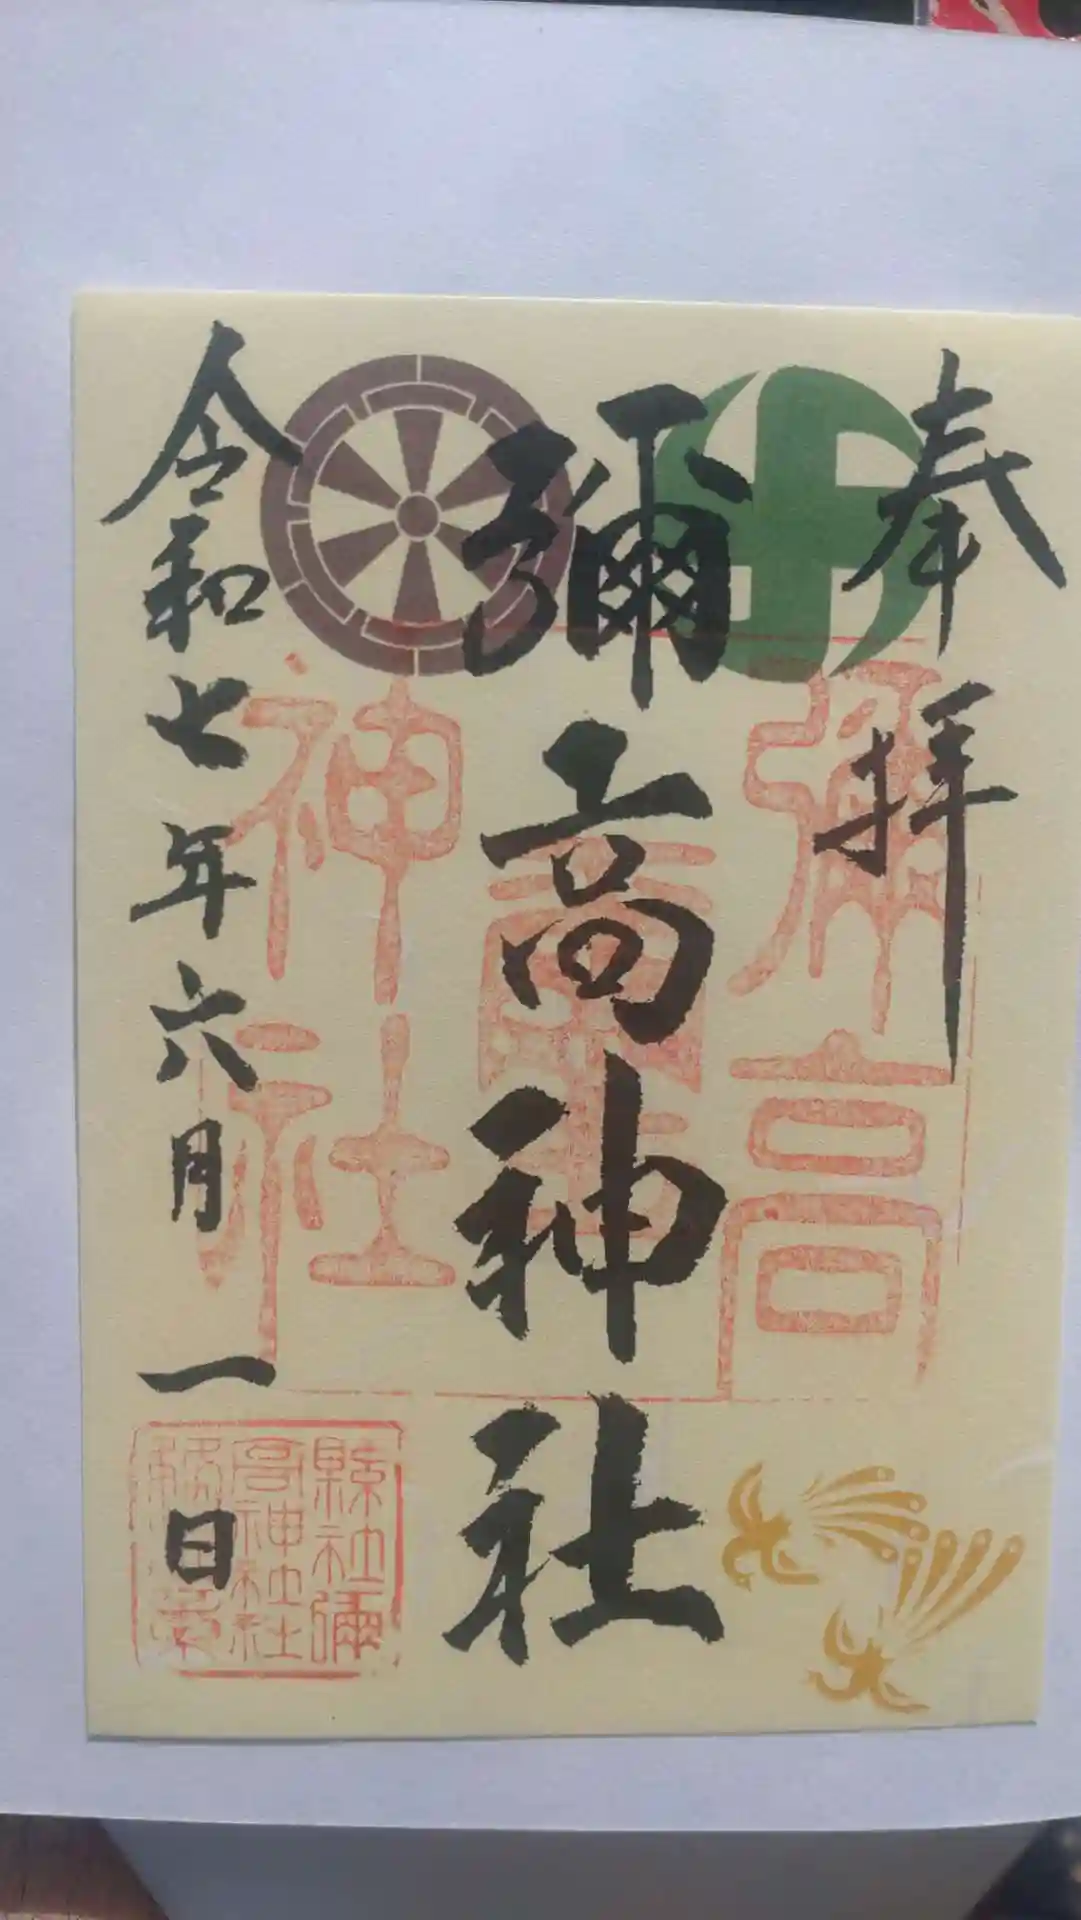 奉拝
彌高神社
令和七年六月一日
彌高
神社
縣社彌
高神社